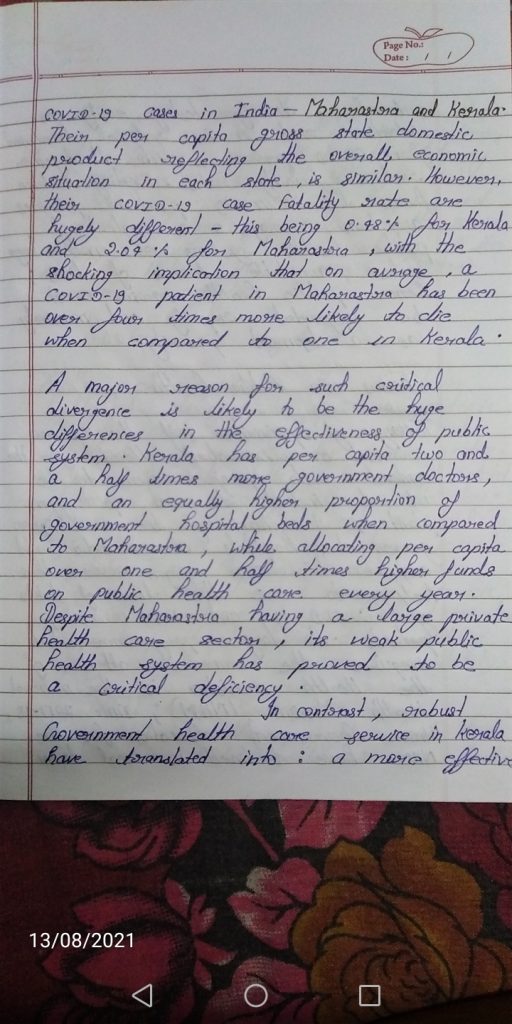 Page No.:
Date: / /
COVID-19 cases in India - Maharastra and Kerala.
Their per capita gross state domestic
product reflecting the overall economic
situation in each state, is similar. However,
their COVID-19 case Fatality rate are
hugely different - this being 0.48% for Kerala
and 2.04 % for Maharastra, with the
shocking implication that on average, a
COVID-19 patient in Maharastra has been
over four times more likely to die
when compared to one in Kerala.
A major reason for such critical
divergence is likely to be the huge
differences in the effectiveness of public
system. Kerala has per capita two and
a half times more government doctors,
and an equally higher proportion of
government hospital beds when compared
to Maharastra, while allocating per capita
over one and half times higher funds
on public health care every year.
Despite Maharastra having a large private
health care sector, its weak public
health system has proved to be
a critical deficiency.
In contrast, robust
Government health care service in Kerala
have translated into : a more effective
13/08/2021